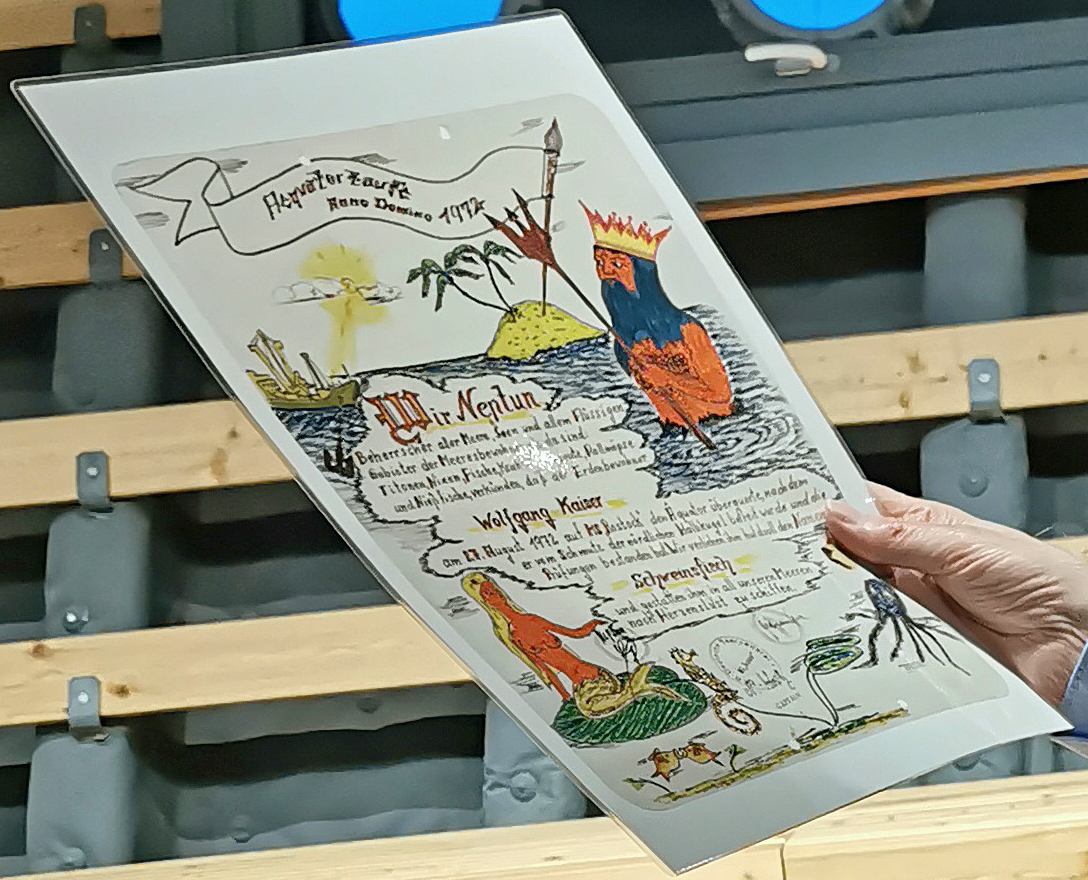 Äquatortaufe
Anno Domino 1972
Wir Neptun
Beherrscher aler Meere, Seen und allem Flüssigen
Gebieter der Meeresbewohner da sind
Titonen, Nixen, Fische, Pallmöpse
und Nießfische, verkünden, daß der Erdenbewohner
Wolfgang Kaiser
am 27. August 1972 auf MS "Rostock" den Äquator überquerte, nach dem
er vom Schmutz der nördlichen Halbkugel befreit wurde und die
Prüfungen bestanden hat. Wir verleihen ihm huldvoll den Namen
Schweinsfisch
und gestatten ihm in all unseren Meeren
nach Herzenslust zu schiffen.